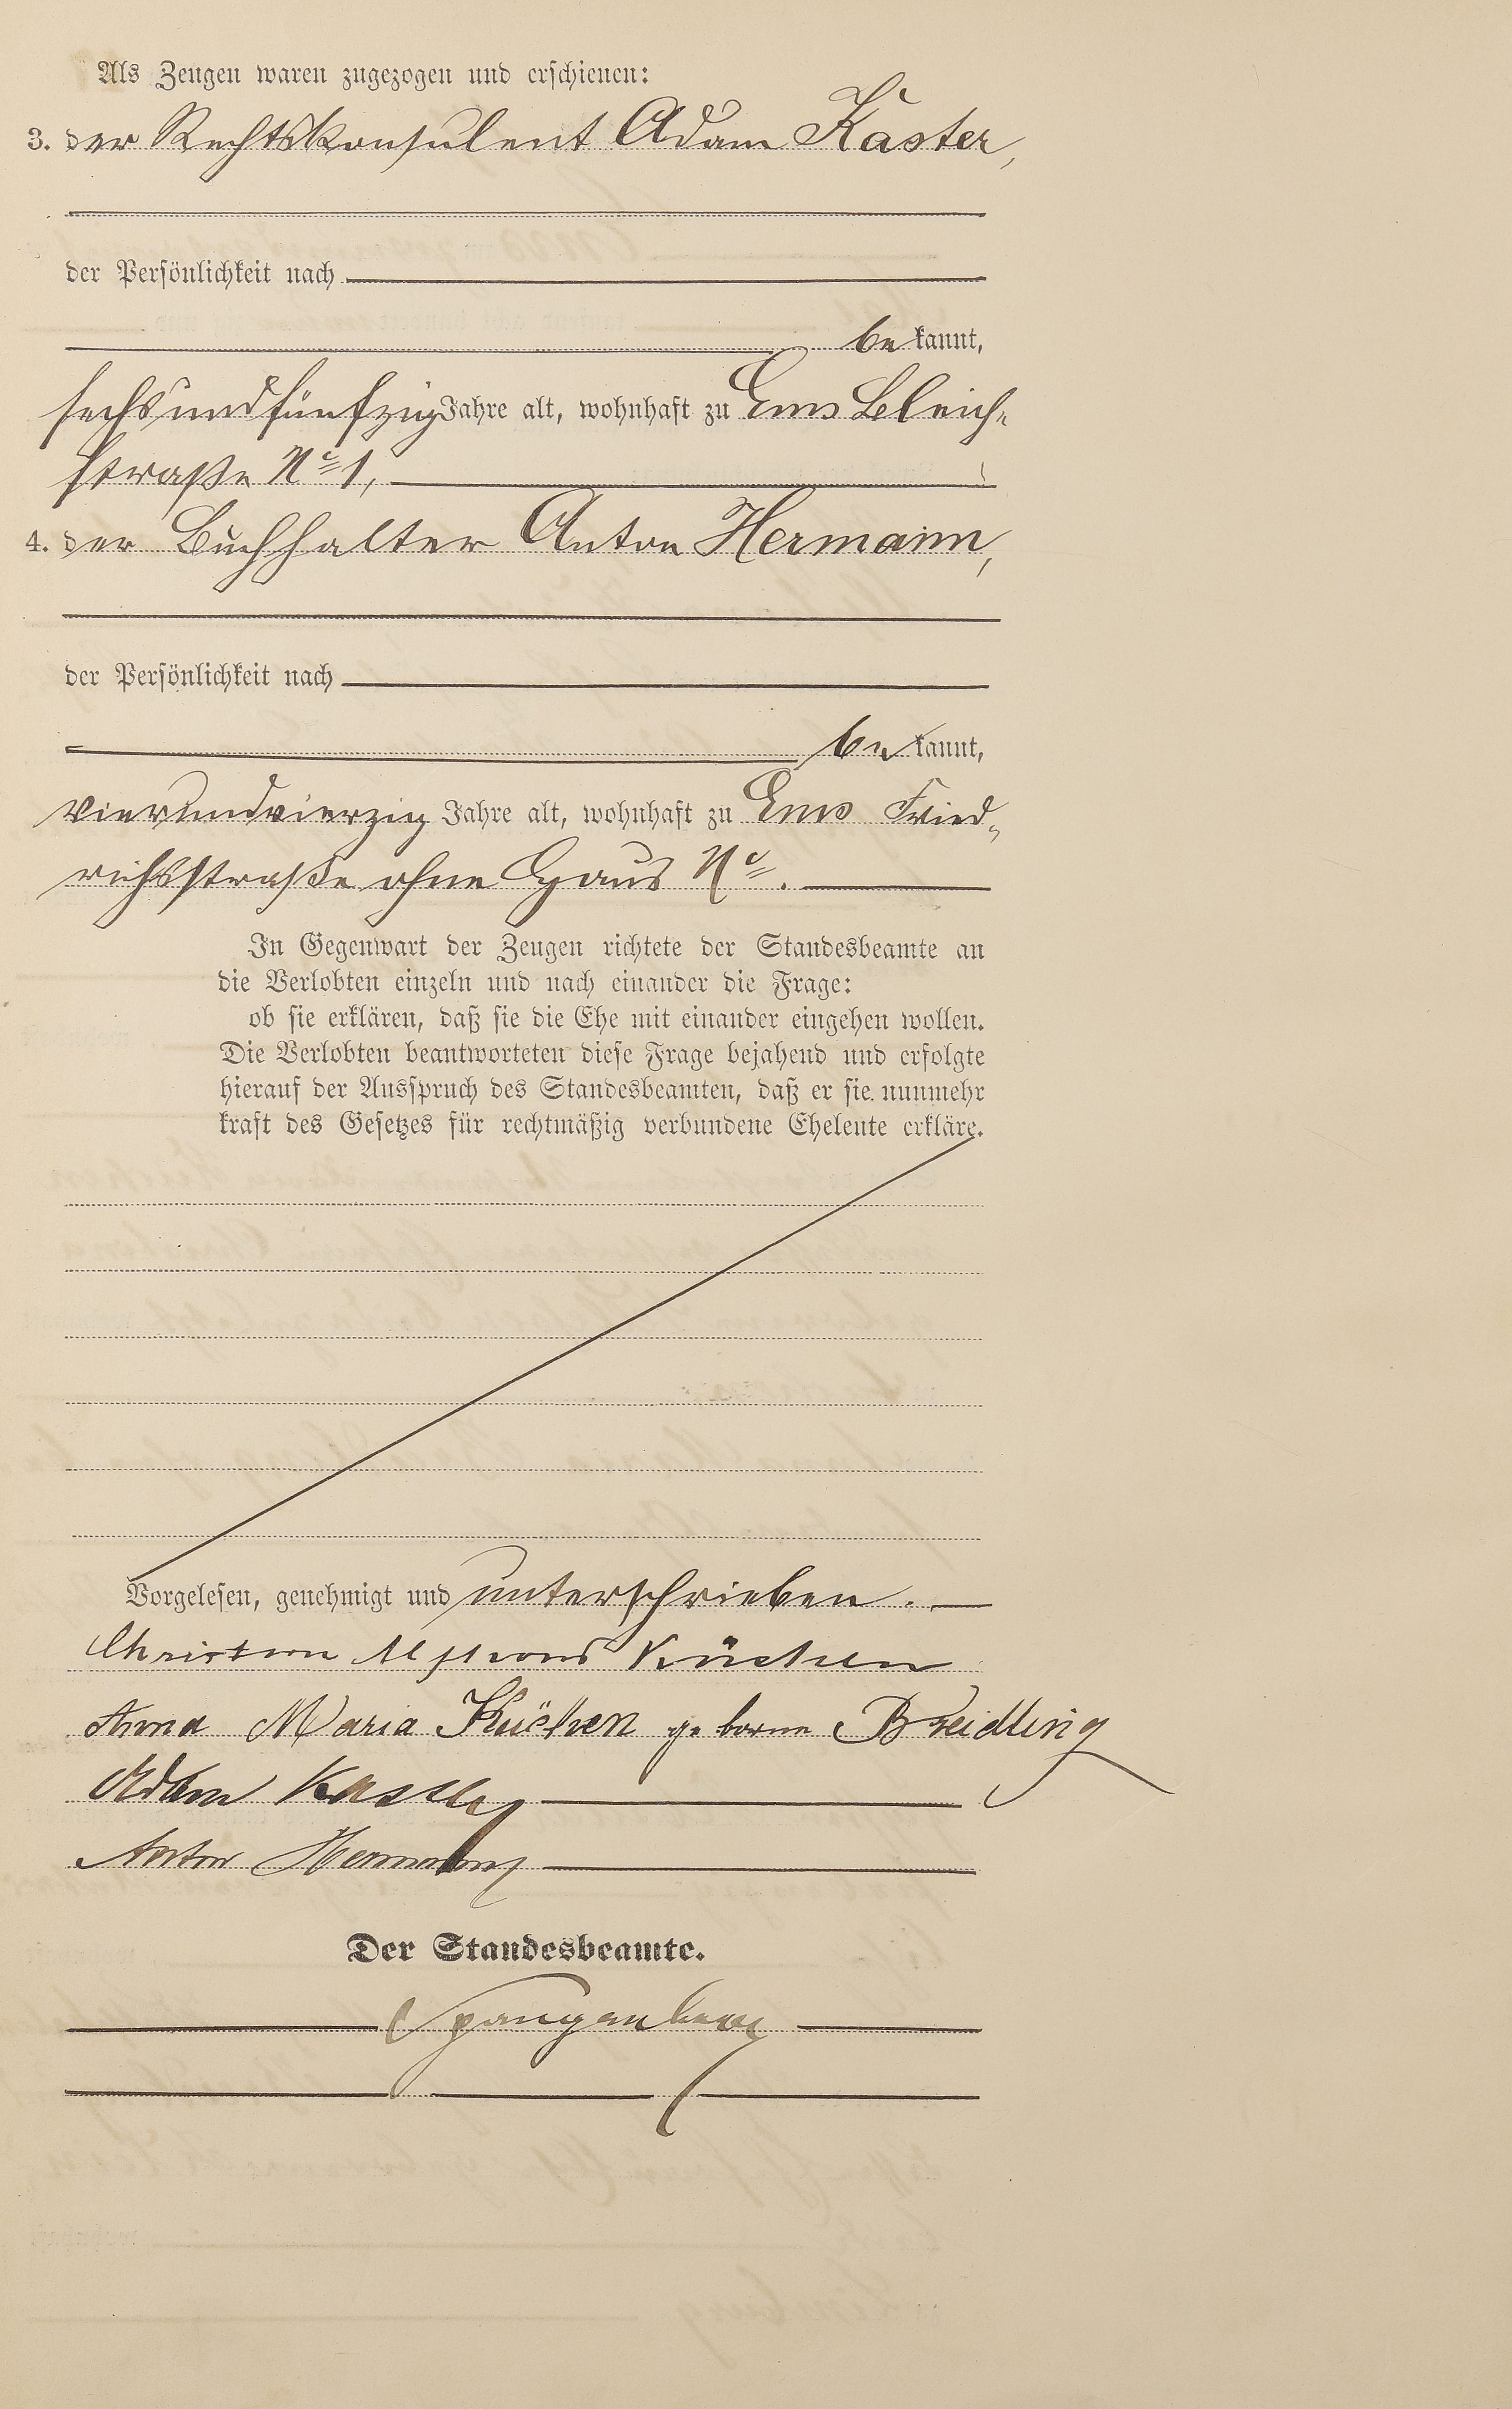 Als Zeugen waren zugezogen und erschienen:
3. der Rechtskonsulent Adam Kaster,
der Persönlichkeit nach
bekannt,
sechsundfünfzig Jahre alt, wohnhaft zu Ems Bleich-
straße No 1,
4. der Buchhalter Anton Hermann,
der Persönlichkeit nach
bekannt,
vierundvierzig Jahre alt, wohnhaft zu Ems Fried-
richsstraße ohne Haus No.
In Gegenwart der Zeugen richtete der Standesbeamte an
die Verlobten einzeln und nach einander die Frage:
ob sie erklären, daß sie die Ehe mit einander eingehen wollen.
Die Verlobten beantworteten diese Frage bejahend und erfolgte
hierauf der Ausspruch des Standesbeamten, daß er sie nunmehr
kraft des Gesetzes für rechtmäßig verbundene Eheleute erkläre.
Vorgelesen, genehmigt und unterschrieben.
Christian Küchen
Anna Maria Küchen geborne Breidling
Adam Kaster
Anton Hermann
Der Standesbeamte.
Spangenberg